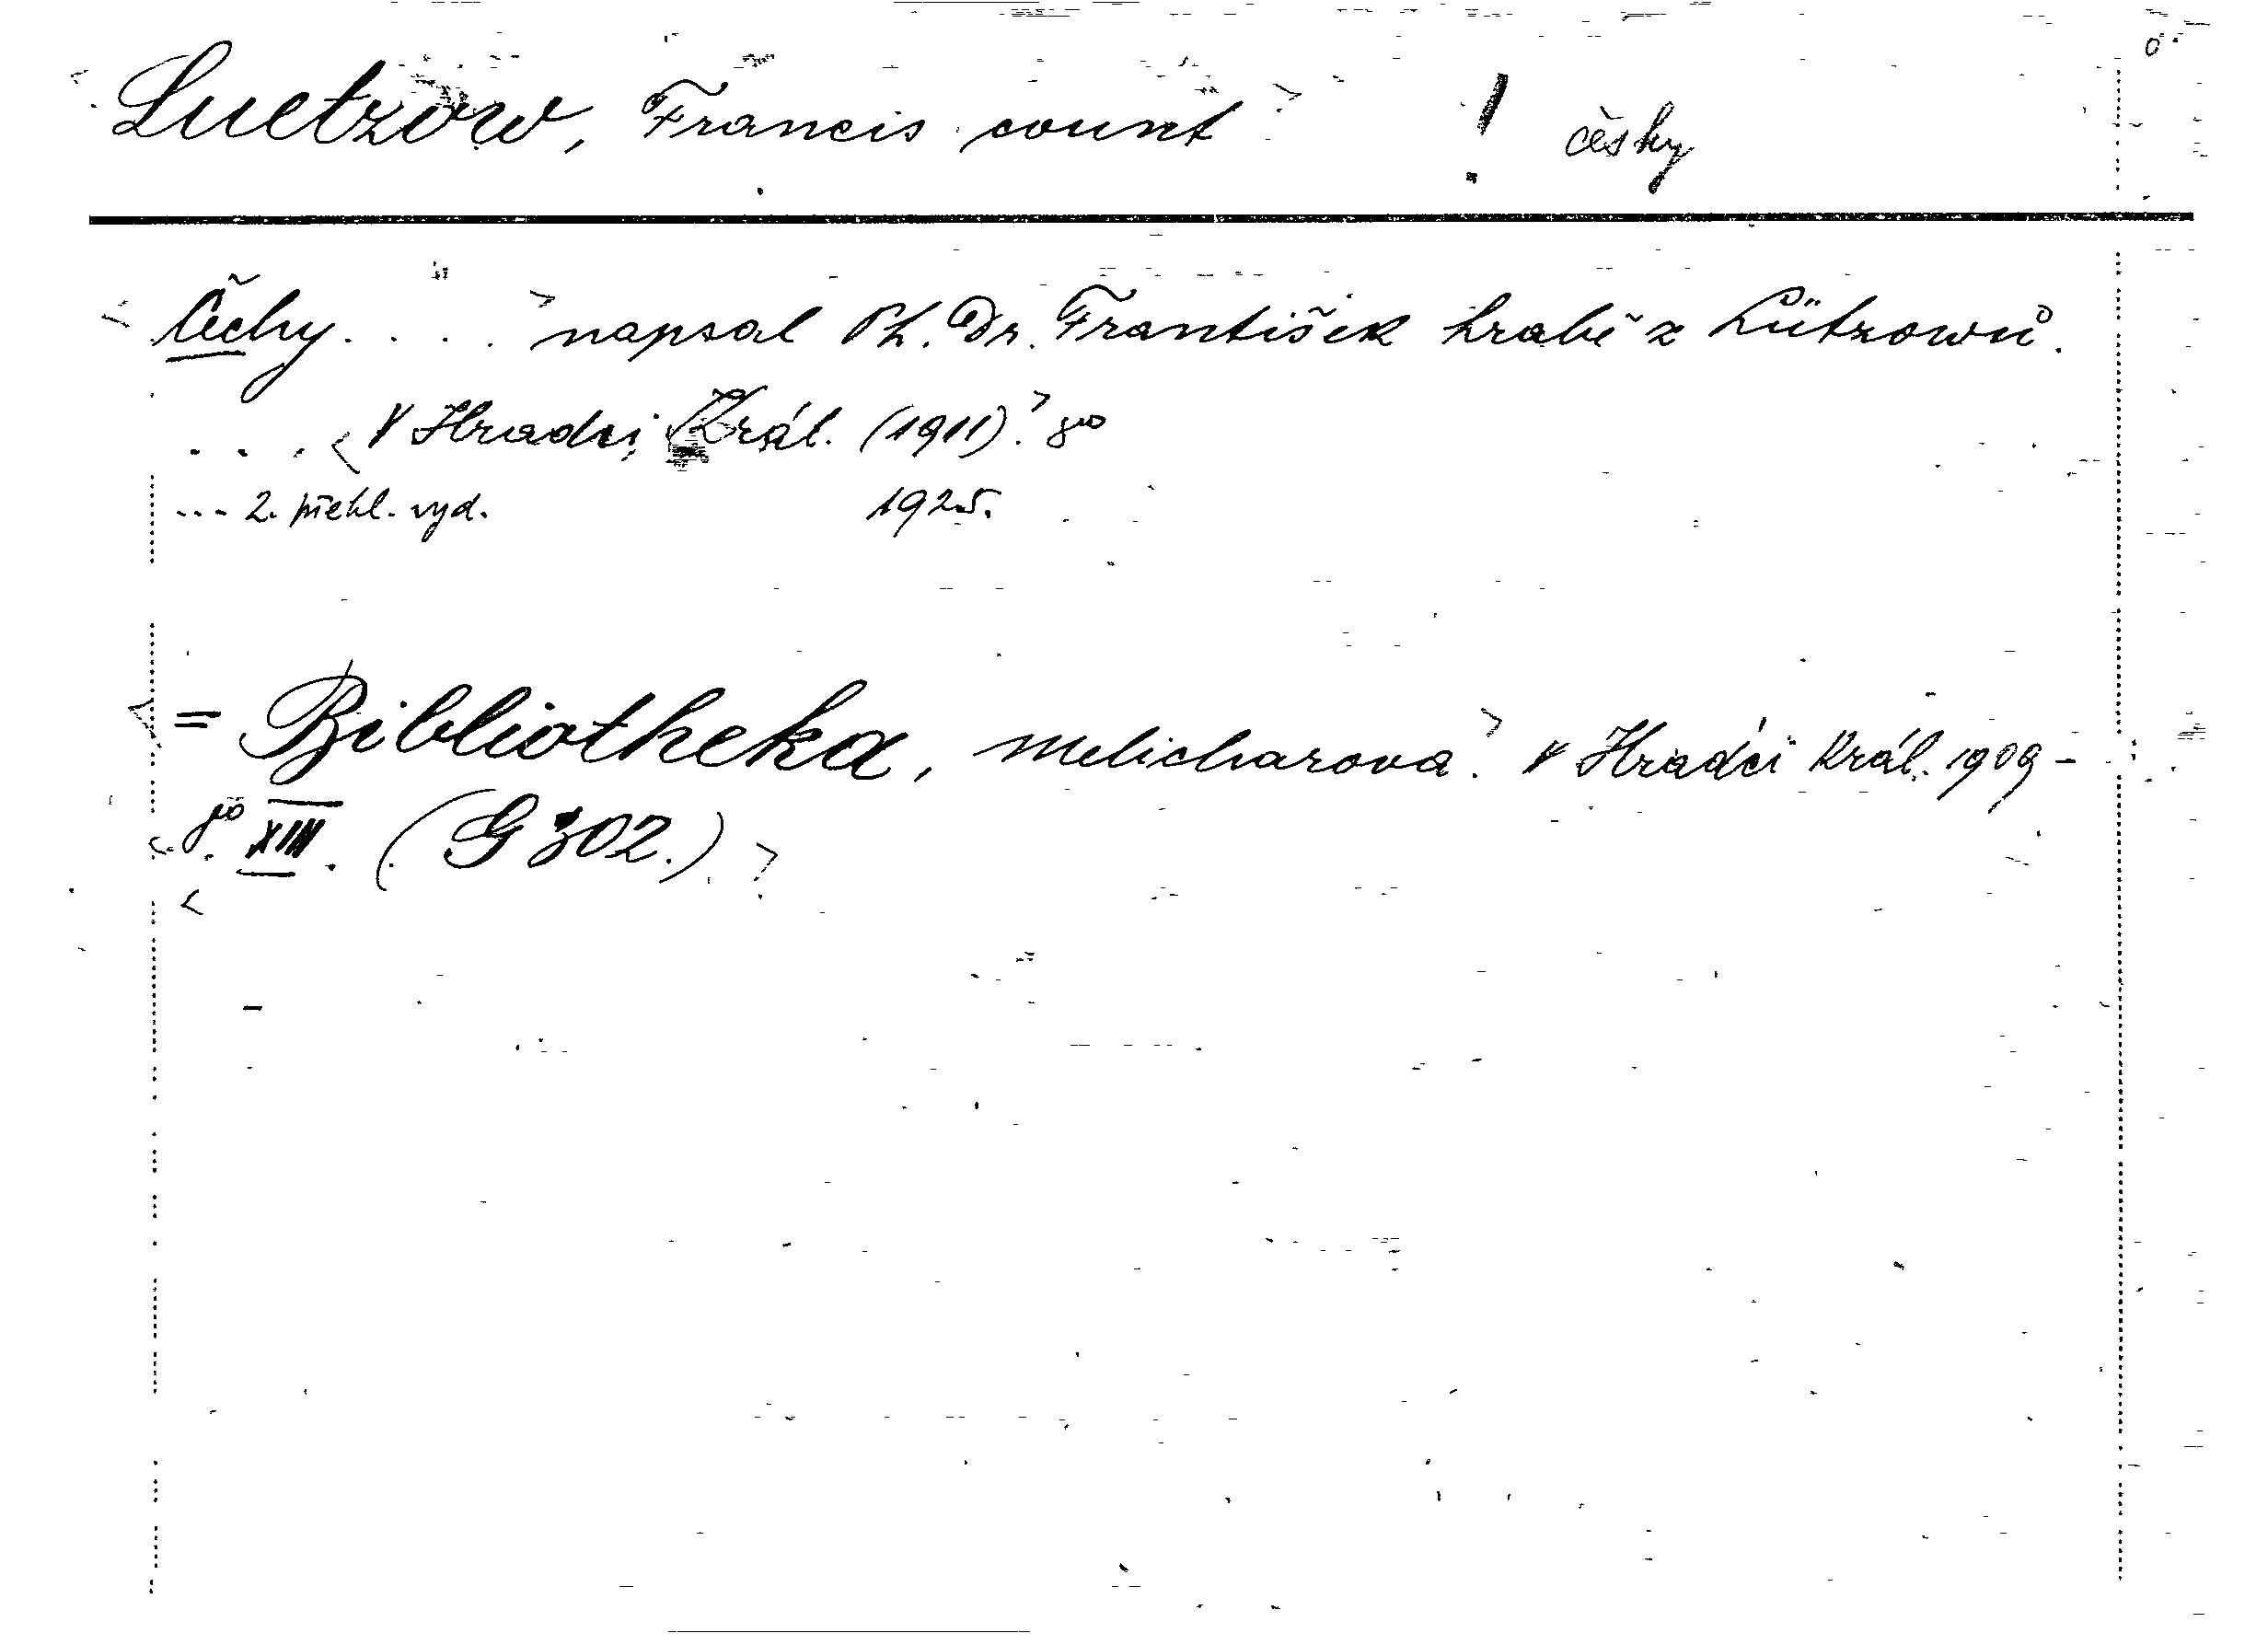 Luetzow, Francis count ! česky
Čechy.... napsal Ph. Dr. František hrabě z Lützowů.
.... V Hradci Král. (1911). 8º
--- 2. přehl. vyd. 1925.
= Bibliotheka, Melicharova. V Hradci Král. 1909 -
8º. XIII. (G 302.)